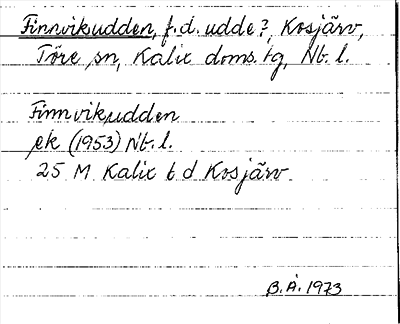 Finnvikudden, f.d. udde?, Kosjärv,
Töre sn, Kalix doms. tg, Nb. l.
Finnvikudden
ek (1953) Nb. l.
25 M Kalix b d Kosjärv
B.Å. 1973